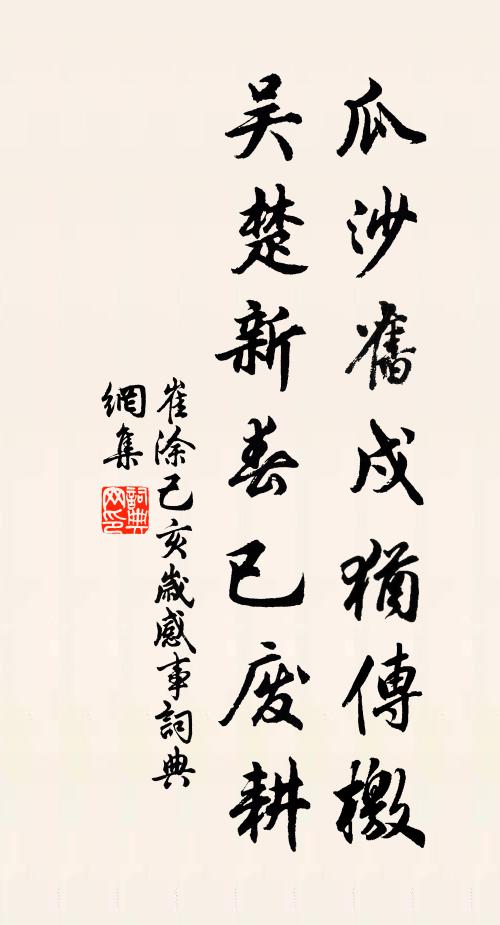 瓜沙舊戍猶傳檄
吴楚新春已废耕
崔涂己亥歲感事詞典
網集
詞典
网印